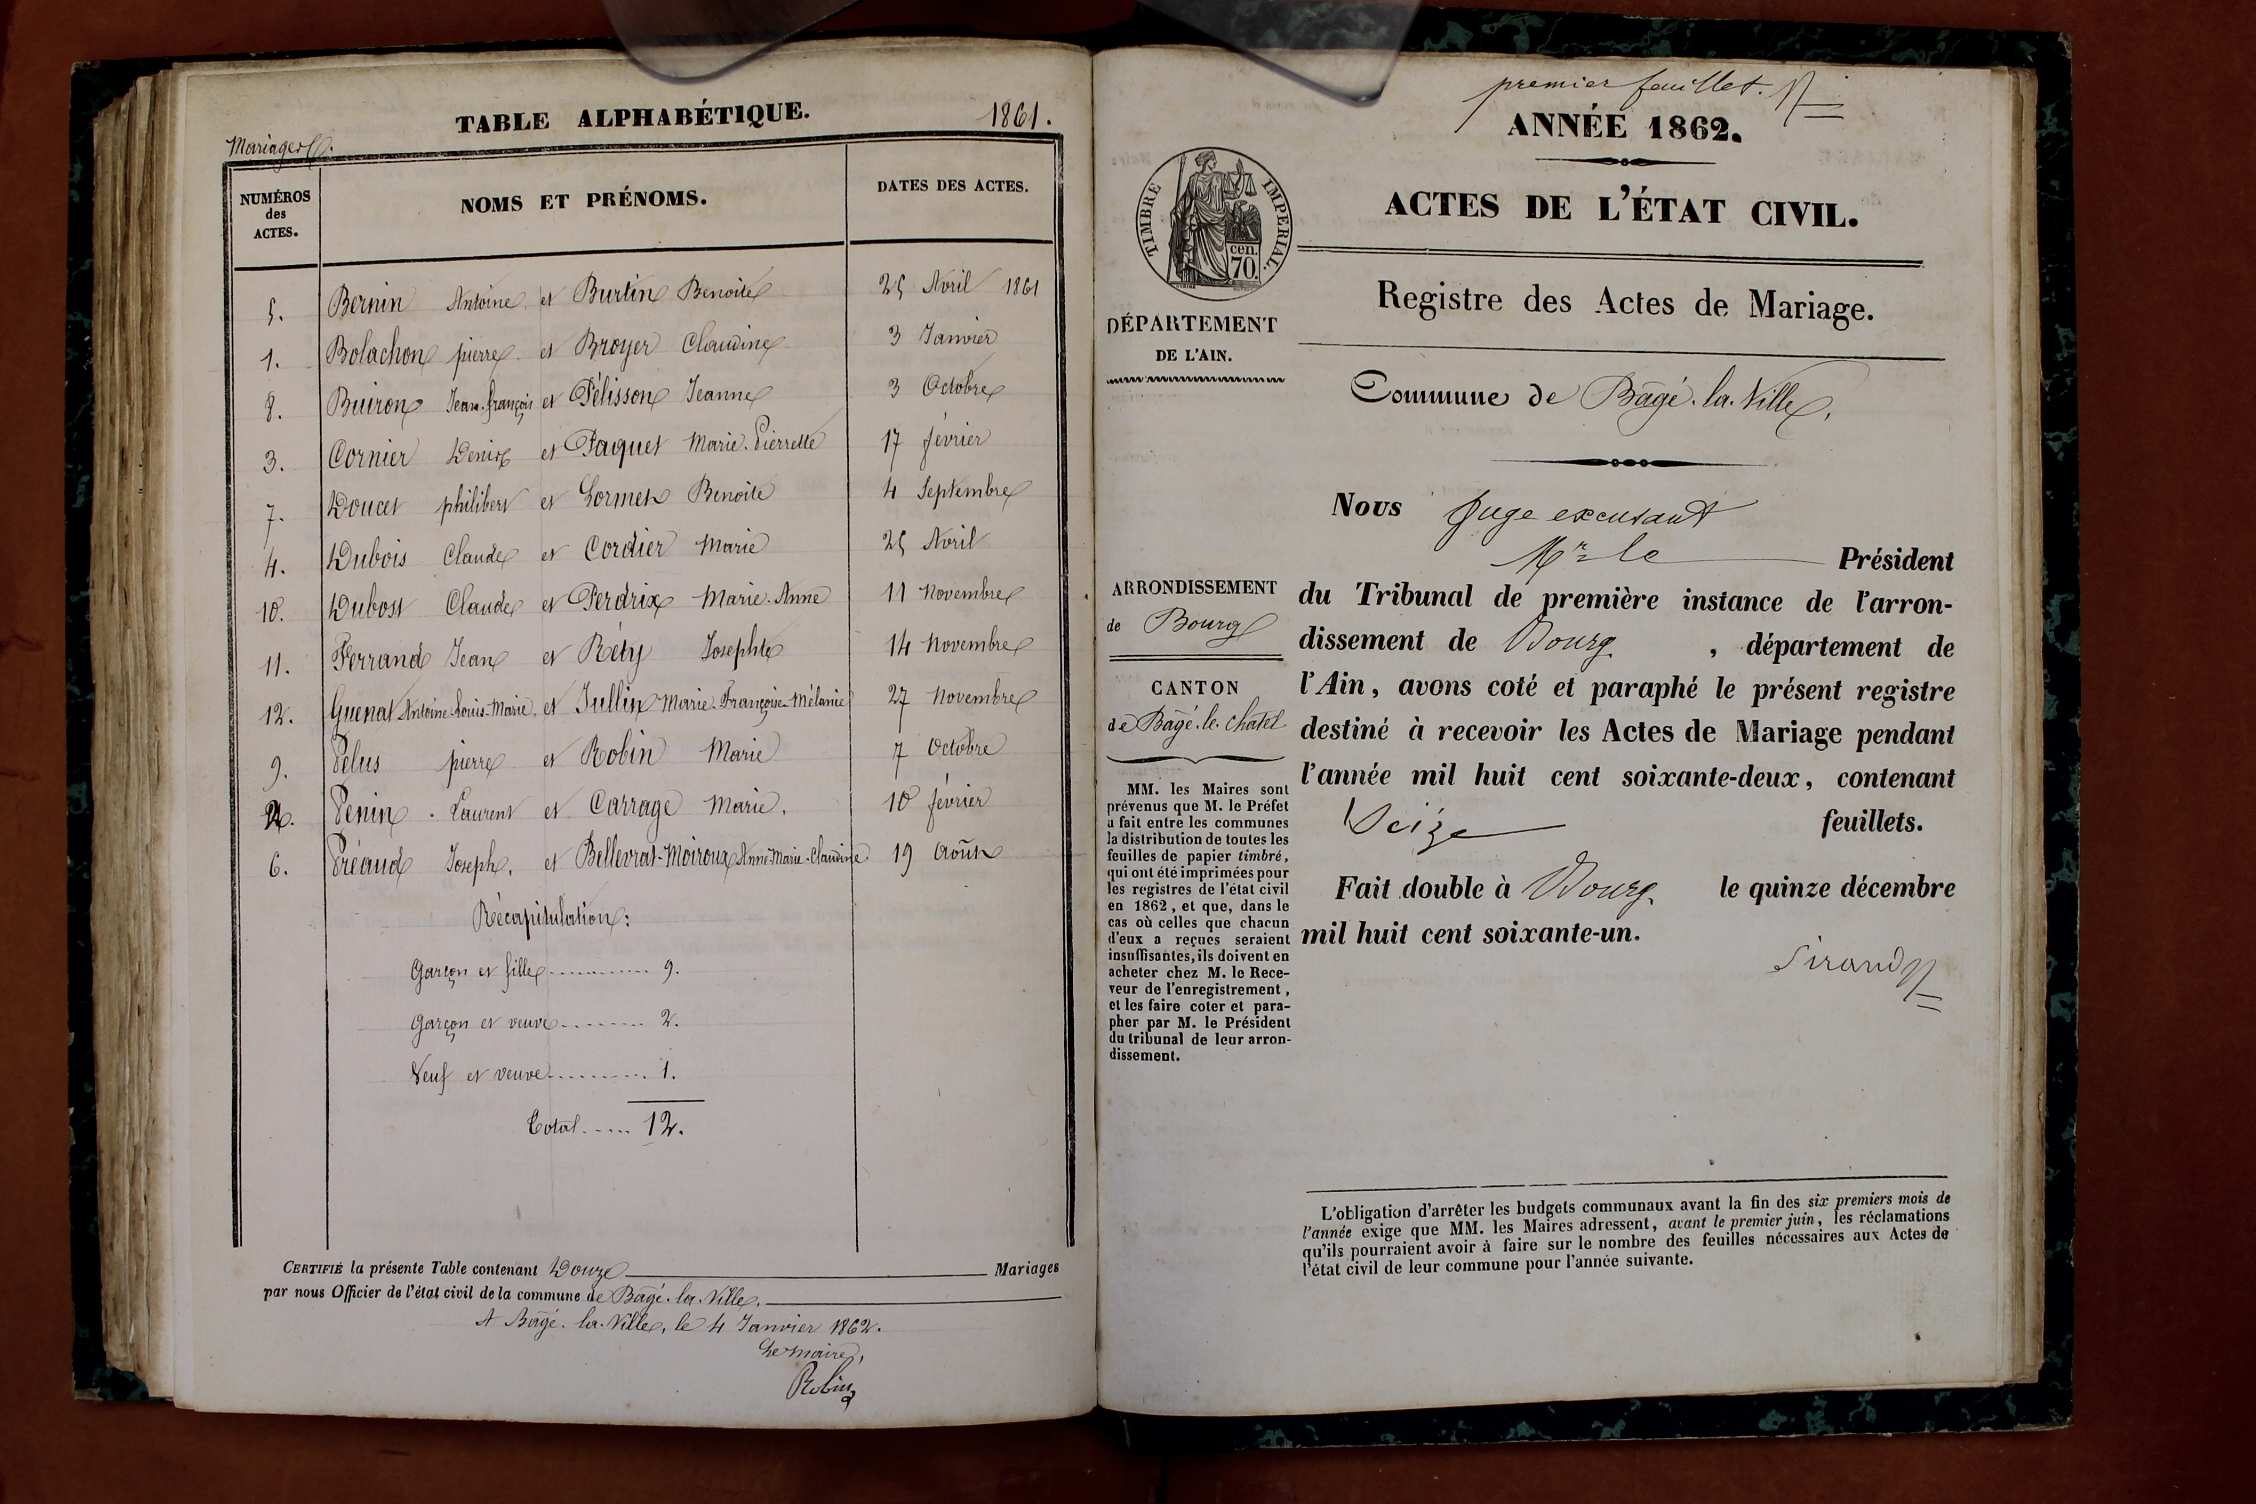 TABLE ALPHABÉTIQUE. 1861.
Mariages.
NUMÉROS des ACTES. NOMS ET PRÉNOMS. DATES DES ACTES.
5. Bernin Antoine et Burtin Benoite 25 Avril 1861
1. Bolachon pierre et Broyer Claudine 3 Janvier
8. Buiron Jean-françois et Pélisson Jeanne 3 Octobre
3. Cornier Denis et Paquet Marie-Pierrette 17 février
7. Doucet philibert et Lormet Benoite 4 Septembre
4. Dubois Claude et Cordier Marie 25 Avril
10. Dubost Claude et Perdrix Marie-Anne 11 Novembre
11. Ferrand Jean et Réty Josephte 14 Novembre
12. Guenat Antoine-Louis-Marie et Jullin Marie-Françoise-Mélanie 27 Novembre
9. Pelus pierre et Robin Marie 7 Octobre
2. Penin Laurent et Carrage Marie. 10 février
6. Préaud Joseph, et Bellevrat-Moiroux Anne-Marie-Claudine 19 Août
Récapitulation:
Garçon et fille 9.
Garçon et veuve 2.
Veuf et veuve 1.
Total 12.
CERTIFIÉ la présente Table contenant Douze Mariages
par nous Officier de l'état civil de la commune de Bâgé-la-Ville.
A Bâgé-la-Ville, le 4 Janvier 1862.
Le maire,
Robin
premier feuillet.
ANNÉE 1862.
TIMBRE IMPERIAL.
cen.
70.
ACTES DE L'ÉTAT CIVIL.
Registre des Actes de Mariage.
DÉPARTEMENT
DE L'AIN.
Commune de Bâgé-la-Ville.
ARRONDISSEMENT
de Bourg
CANTON
de Bâgé-le-Chatel
MM. les Maires sont
prévenus que M. le Préfet
a fait entre les communes
la distribution de toutes les
feuilles de papier timbré,
qui ont été imprimées pour
les registres de l'état civil
en 1862, et que, dans le
cas où celles que chacun
d'eux a reçues seraient
insuffisantes, ils doivent en
acheter chez M. le Rece-
veur de l'enregistrement,
et les faire coter et para-
pher par M. le Président
du tribunal de leur arron-
dissement.
Nous Juge excusant
Mr le Président
du Tribunal de première instance de l'arron-
dissement de Bourg, département de
l'Ain, avons coté et paraphé le présent registre
destiné à recevoir les Actes de Mariage pendant
l'année mil huit cent soixante-deux, contenant
Seize feuillets.
Fait double à Bourg le quinze décembre
mil huit cent soixante-un.
Sirand
L'obligation d'arrêter les budgets communaux avant la fin des six premiers mois de
l'année exige que MM. les Maires adressent, avant le premier juin, les réclamations
qu'ils pourraient avoir à faire sur le nombre des feuilles nécessaires aux Actes de
l'état civil de leur commune pour l'année suivante.